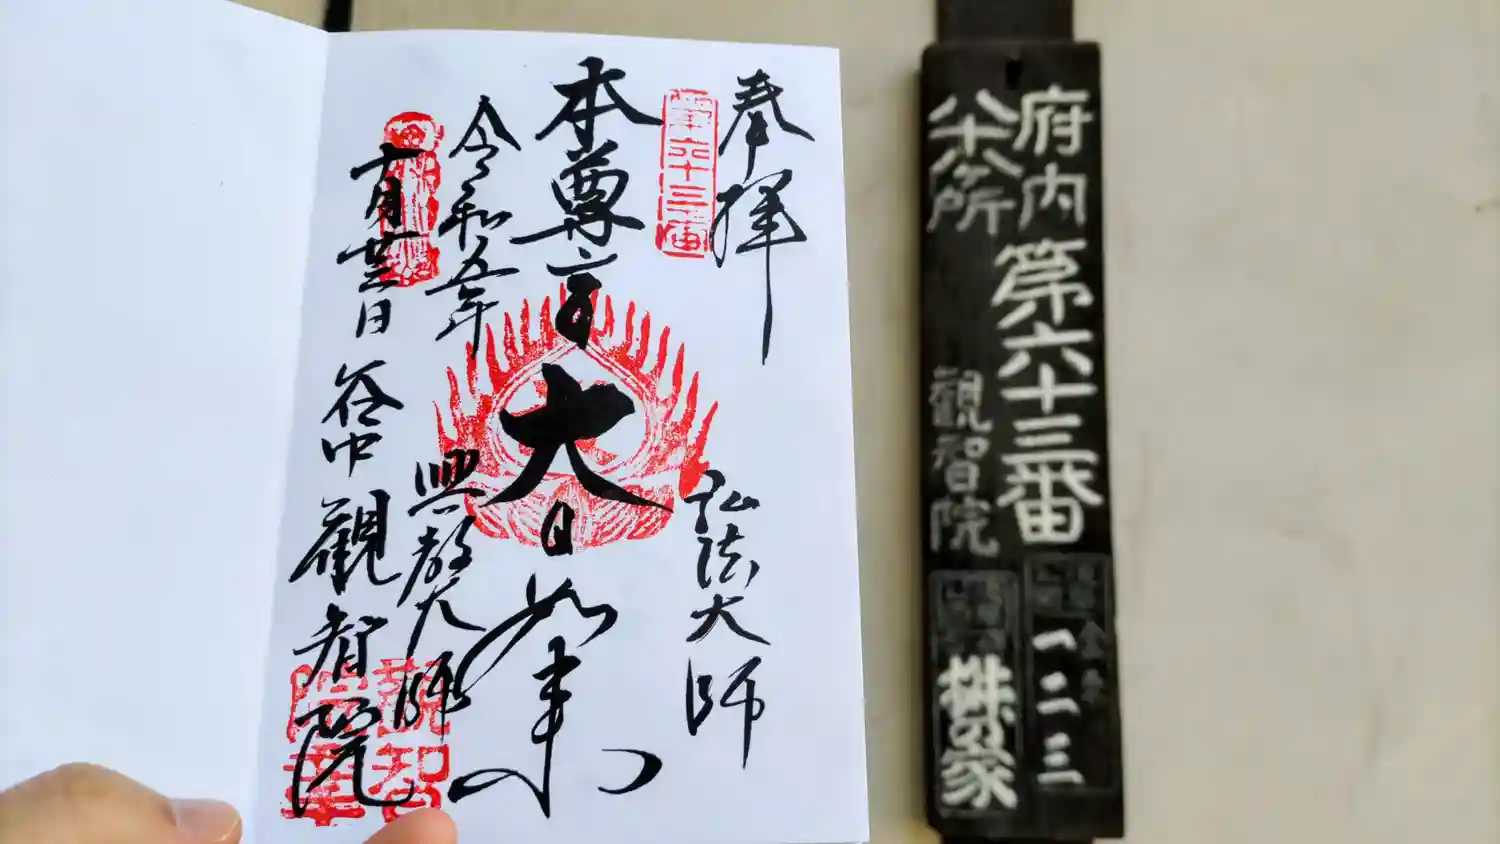 奉拝
第六十三番
弘法大師
本尊
大日如来
令和五年
興教大師
十月廿三日
谷中
観智院
府内
第六十三番
八十八ヶ所
観智院
一二三